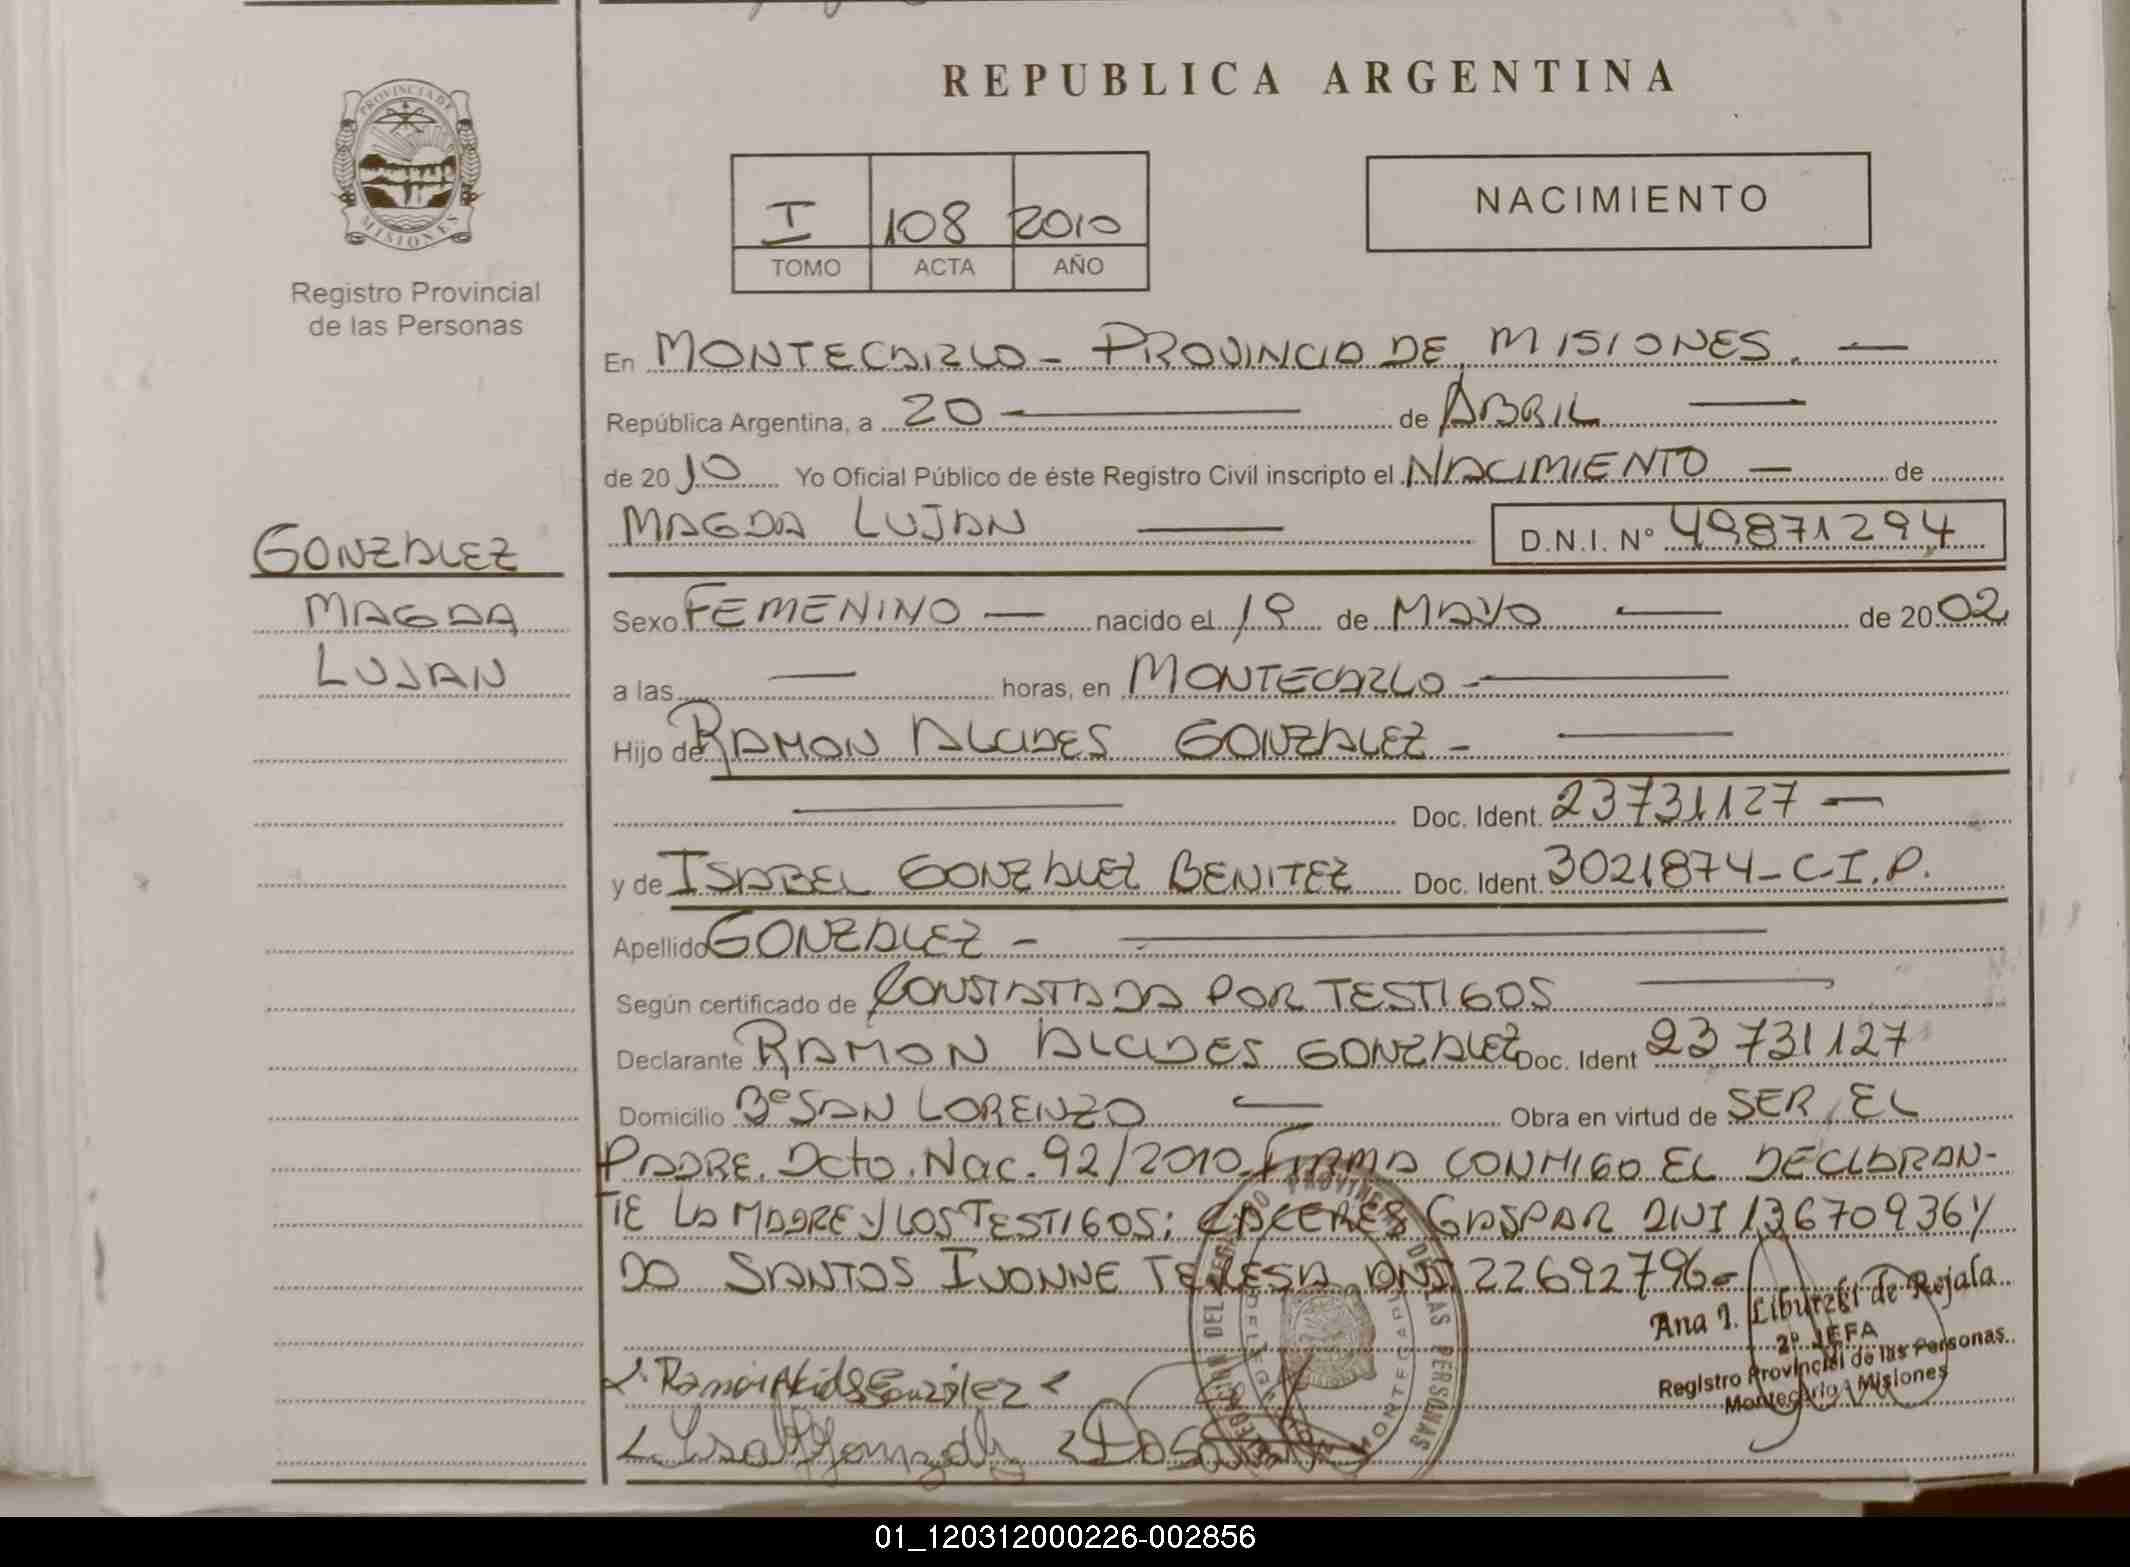 REPUBLICA ARGENTINA
PROVINCIA DE
MISIONES
Registro Provincial
de las Personas
I 108 2010
TOMO ACTA AÑO
NACIMIENTO
En MONTECARLO - PROVINCIA DE MISIONES. —
República Argentina, a 20 — de ABRIL —
de 20 10 Yo Oficial Público de éste Registro Civil inscripto el NACIMIENTO — de
MAGDA LUJAN — D.N.I. N° 49871294
GONZALEZ
MAGDA
LUJAN
Sexo FEMENINO — nacido el 19 de MAYO — de 20 02
a las — horas, en MONTECARLO —
Hijo de RAMON ALCIDES GONZALEZ - —
— Doc. Ident. 23731127 —
y de ISABEL GONZALEZ BENITEZ Doc. Ident. 3021874 - C.I.P.
Apellido GONZALEZ - —
Según certificado de CONSTATADA POR TESTIGOS —
Declarante RAMON ALCIDES GONZALEZ Doc. Ident 23 731127
Domicilio B° SAN LORENZO — Obra en virtud de SER EL
PADRE. Dcto. Nac. 92/2010. FIRMA CONMIGO EL DECLARAN-
TE LA MADRE Y LOS TESTIGOS; CACERES GASPAR DNI 13670936 Y
DO SANTOS IVONNE TERESA DNI 22692796 -
Ana I. Liburzki de Rejala
2º JEFA
Registro Provincial de las Personas
Montecarlo - Misiones
Ramon Alcides González
DE LAS PERSONAS
MONTECARLO
01_120312000226-002856